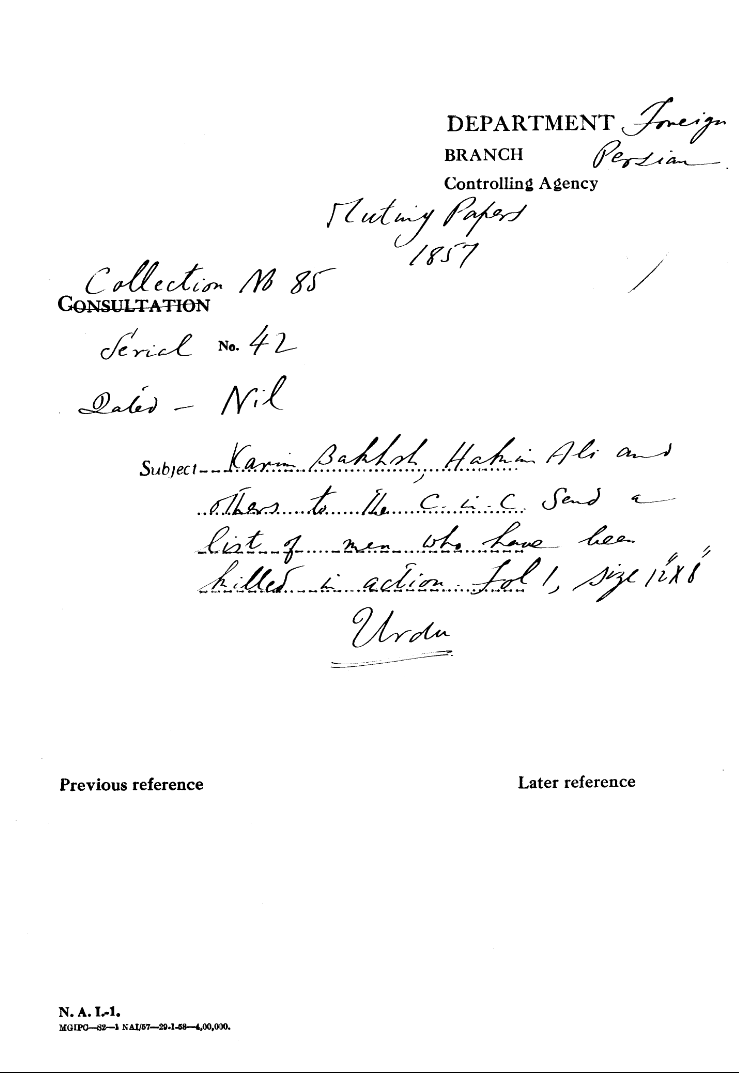 DEPARTMENT Foreign
BRANCH Persian
Controlling Agency
Mutiny Papers
1857
Collection No 85
CONSULTATION
Serial No. 42
Dated - Nil
Subject Karim Bakhsh, Hakim Ali and
others to the C-in-C. Send a
list of men who have been
killed in action. Fol 1, size 12"x8"
Urdu
Previous reference Later reference
N. A. I.-1.
MGIPC—S2—1 NAI/57—29-1-58—4,00,000.